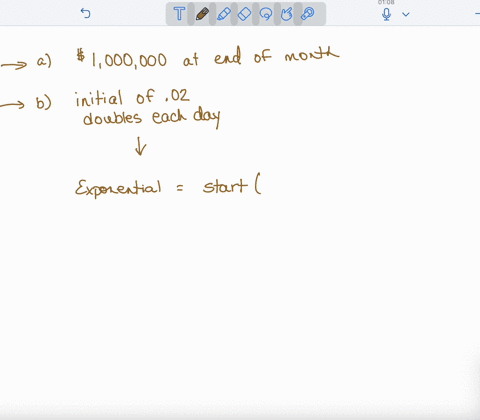 01:08
T
→ a) $1,000,000 at end of month
→ b) initial of .02
doubles each day
↓
Exponential = start (